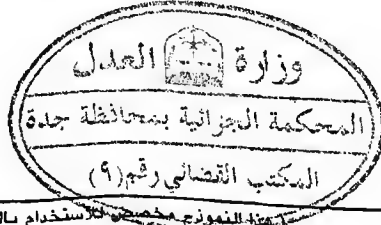 وزارة العدل
المحكمة الجزائية بمحافظة جدة
المكتب القضائي رقم (٩)
هذا النموذج مخصص للاستخدام بالـ